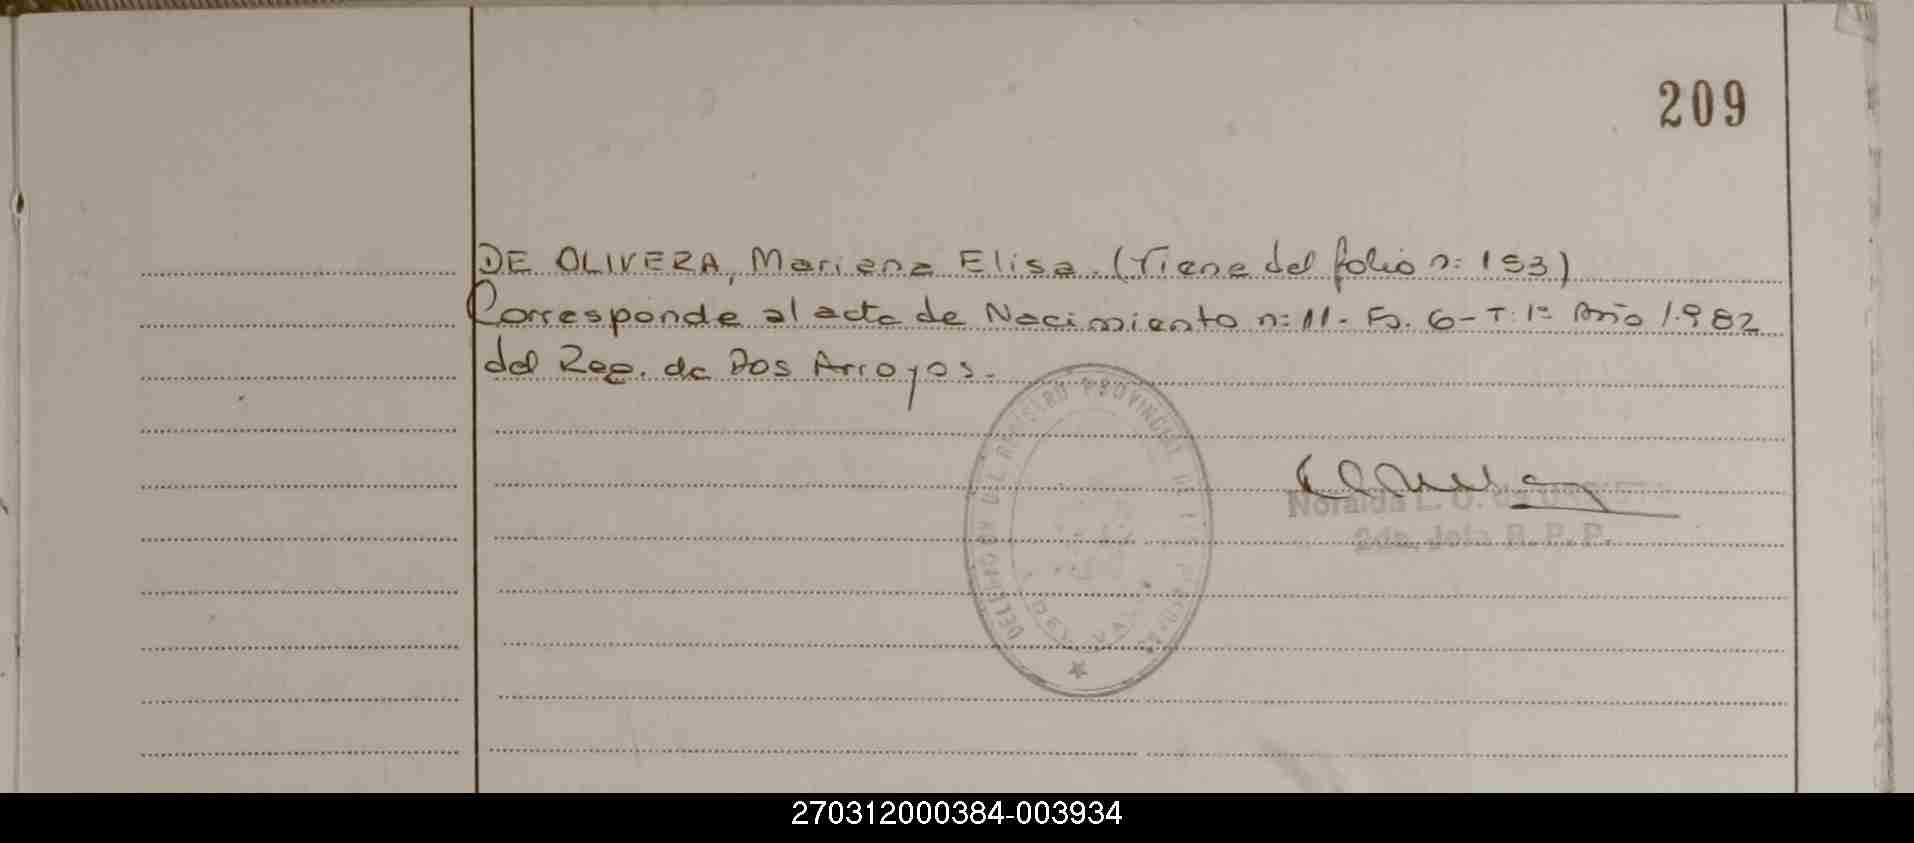 209
DE OLIVERA, Mariana Elisa. (Viene del folio n: 193)
Corresponde al acta de Nacimiento n: 11- Fo. 6- T: 1º Año 1.982
del Reg. de Dos Arroyos.
DELEGACION DEL REGISTRO PROVINCIAL DE
Noralda L. D.
2da. Jefa R.P.P.
270312000384-003934